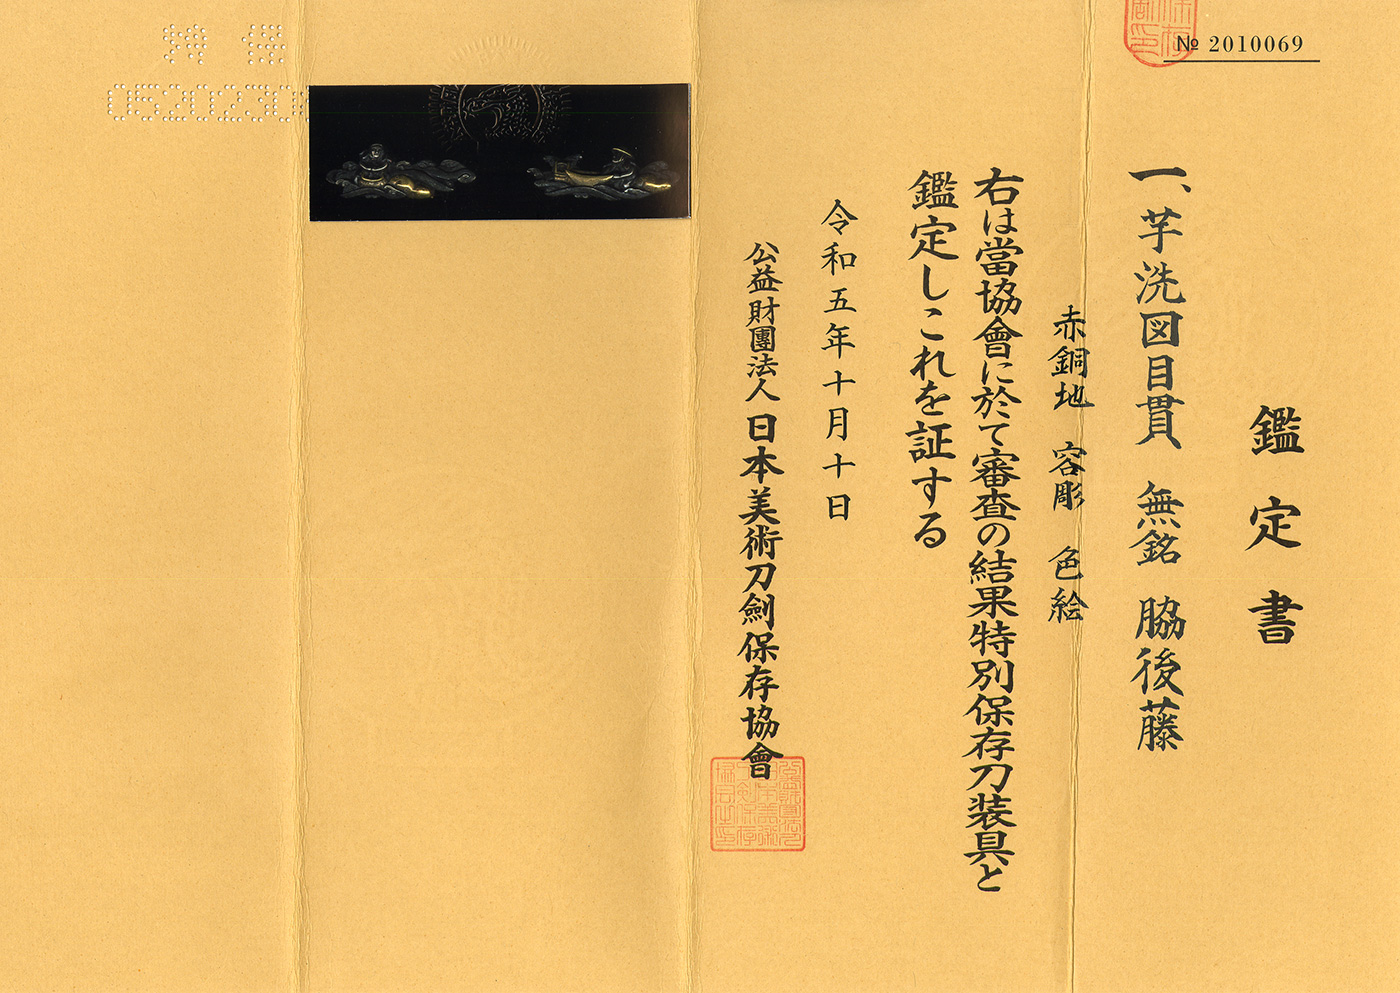 № 2010069
鑑定書
一、芋洗図目貫 無銘 脇後藤
赤銅地 容彫 色絵
右は當協會に於て審査の結果特別保存刀装具と
鑑定しこれを証する
令和五年十月十日
公益財團法人 日本美術刀劍保存協會